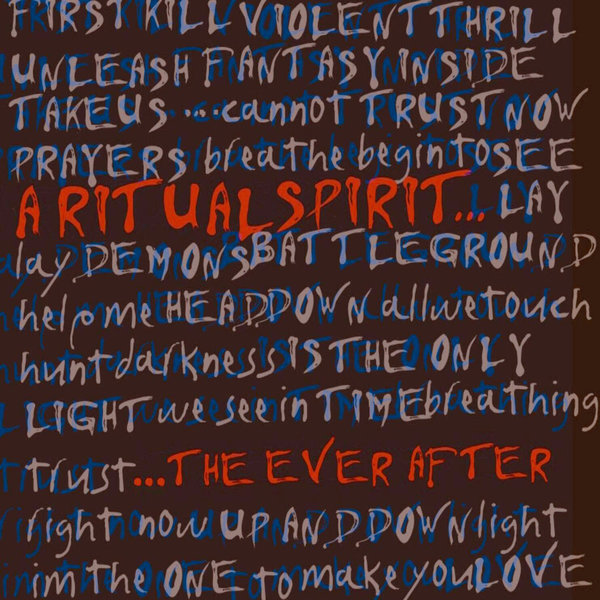 FIRST KILL VIOLENT THRILL
UNLEASH FANTASY INSIDE
TAKE US ....cannot TRUST NOW
PRAYERS breathe begin to SEE
A RITUAL SPIRIT... LAY
lay DEMONS BATTLEGROUND
help me HEAD DOWN all we touch
hunt darkness IS THE ONLY
LIGHT we see in TIME breathing
trust...THE EVER AFTER
right now UP AND DOWN light
im the ONE to make you LOVE